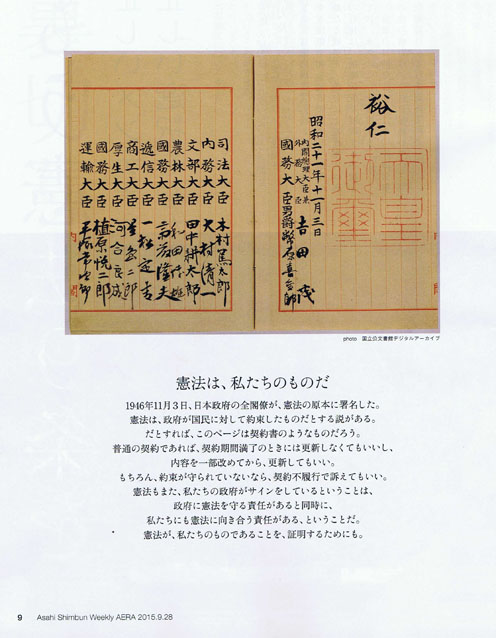 裕仁
天皇
御璽
昭和二十一年十一月三日
内閣総理大臣兼
外務大臣 吉田茂
国務大臣 男爵幣原喜重郎
司法大臣 木村篤太郎
内務大臣 大村清一
文部大臣 田中耕太郎
農林大臣 和田博雄
国務大臣 斎藤隆夫
逓信大臣 一松定吉
商工大臣 星島二郎
厚生大臣 河合良成
国務大臣 植原悦二郎
運輸大臣 平塚常次郎
photo 国立公文書館デジタルアーカイブ
憲法は、私たちのものだ
1946年11月3日、日本政府の全閣僚が、憲法の原本に署名した。
憲法は、政府が国民に対して約束したものだとする説がある。
だとすれば、このページは契約書のようなものだろう。
普通の契約であれば、契約期間満了のときには更新しなくてもいいし、
内容を一部改めてから、更新してもいい。
もちろん、約束が守られていないなら、契約不履行で訴えてもいい。
憲法もまた、私たちの政府がサインをしているということは、
政府に憲法を守る責任があると同時に、
私たちにも憲法に向き合う責任がある、ということだ。
憲法が、私たちのものであることを、証明するためにも。
9 Asahi Shimbun Weekly AERA 2015.9.28